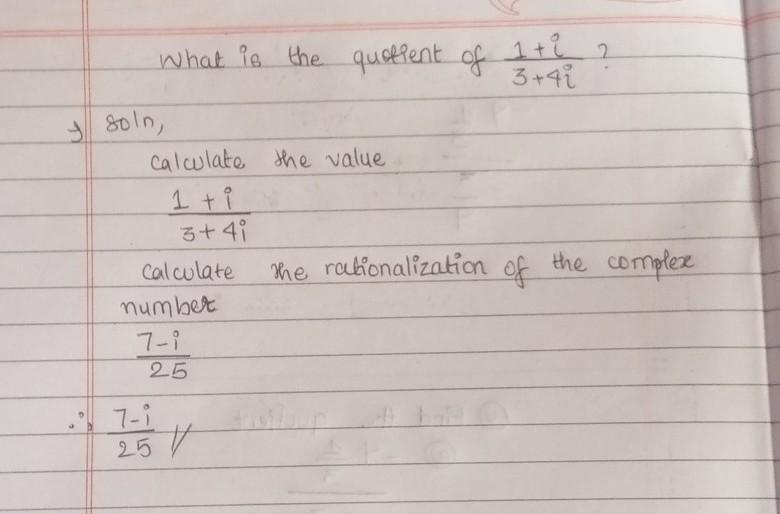 What is the quotient of 1+i/3+4i ?
soln,
calculate the value
1 + i
3 + 4i
calculate the rationalization of the complex
number
7-i
25
∴ 7-i
25 //